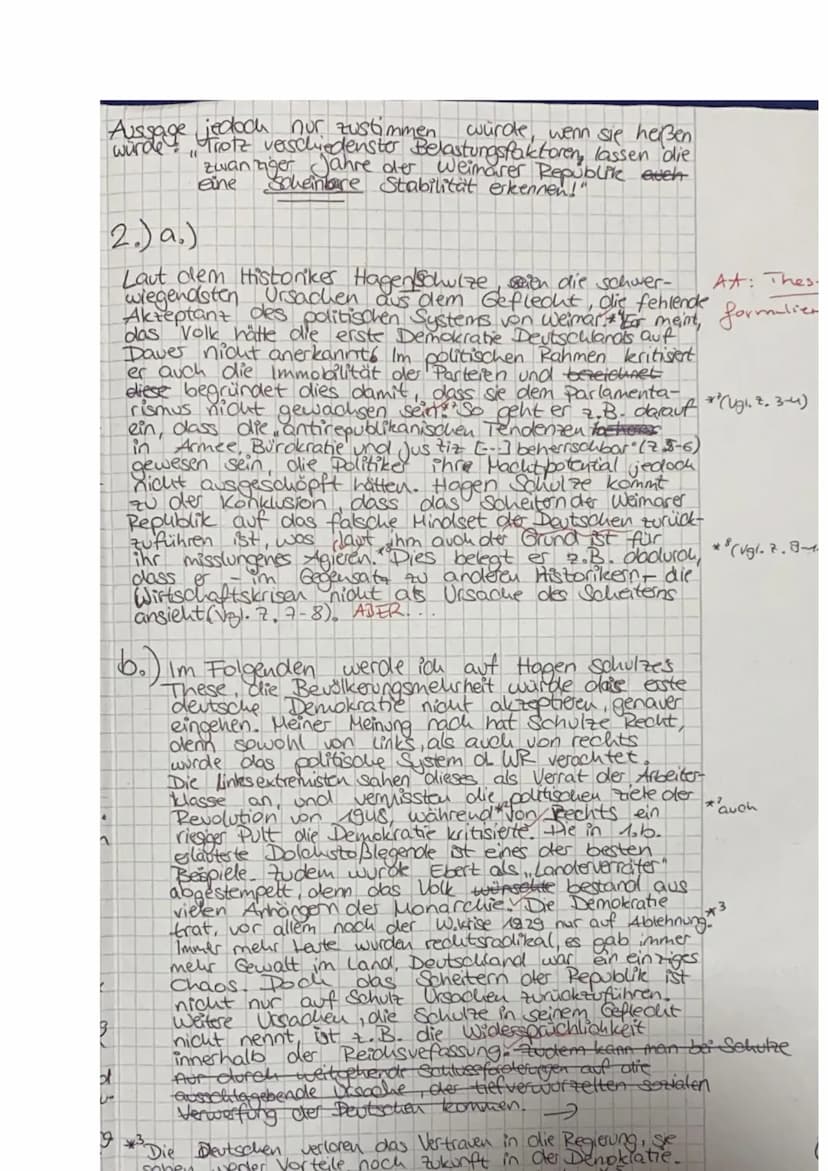 Aussage jedoch nur zustimmen würde, wenn sie heißen
würde: „Trotz verschiedenster Belastungsfaktoren, lassen die
zwanziger Jahre der Weimarer Republik auch
eine scheinbare Stabilität erkennen!"
2.) a.)
Laut dem Historiker Hagen Schulze, seien die schwer-
wiegendsten Ursachen aus dem Geflecht, die fehlende
Akzeptanz des politischen Systems von Weimar.* Er meint,
das Volk hätte die erste Demokratie Deutschlands auf
Dauer nicht anerkannt. Im politischen Rahmen kritisiert
er auch die Immobilität der Parteien und bezeichnet
diese begründet dies damit, dass sie dem Parlamenta-
rismus nicht gewachsen sein. So geht er z.B. darauf
ein, dass die „antirepublikanischen Tendenzen
in Armee, Bürokratie und Justiz [...] beherrschbar" (Z 5-6)
gewesen sein, die Politiker ihre Machtpotential jedoch
nicht ausgeschöpft hätten. Hagen Schulze kommt
zu der Konklusion, dass das Scheitern der Weimarer
Republik auf das falsche Mindset der Deutschen zurück-
zuführen ist, was laut ihm auch der Grund ist für
ihr misslungenes Agieren.* Dies belegt er z.B. dadurch,
dass er - im Gegensatz zu anderen Historikern - die
Wirtschaftskrisen nicht als Ursache des Scheiterns
ansieht (Vgl. Z. 7-8). ABER...
AA: Thes
formulier
*²(Vgl. Z. 3-4)
*⁸(Vgl. Z. 8-
b.) Im Folgenden werde ich auf Hagen Schulzes
These, die Bevölkerungsmehrheit würde die erste
deutsche Demokratie nicht akzeptieren, genauer
eingehen. Meiner Meinung nach hat Schulze Recht,
denn sowohl von links, als auch von rechts
wurde das politische System d. WR verachtet.
Die Linksextremisten sahen dieses als Verrat der Arbeiter-
klasse an, und vermissten die politischen Ziele der
Revolution von 1948, während* von Rechts ein
riesiger Pult die Demokratie kritisierte. Die in 1.b.
erläuterte Dolchstoßlegende ist eines der besten
Beispiele. Zudem wurde Ebert als „Landerverräter"
abgestempelt, denn das Volk wünschte bestand aus
vielen Anhängern der Monarchie. Die Demokratie
traf, vor allem nach der W.krise 1929 nur auf Ablehnung.*³
Immer mehr Leute wurden rechtsradikal, es gab immer
mehr Gewalt im Land, Deutschland war ein einziges
Chaos. Doch das Scheitern der Republik ist
nicht nur auf Schulz Ursachen zurückzuführen.
Weitere Ursachen, die Schulze in seinem Geflecht
nicht nennt, ist z.B. die Widersprüchlichkeit
innerhalb der Reichsverfassung. Zudem kann man bei Schulze
nur durch weitgehende Schlussforderungen auf die
ausschlaggebende Ursache, der tiefverwurzelten sozialen
Verwerfung der Deutschen kommen. →
*² auch
*³ Die Deutschen verloren das Vertrauen in die Regierung, sie
sahen weder Vorteile noch Zukunft in der Demokratie.